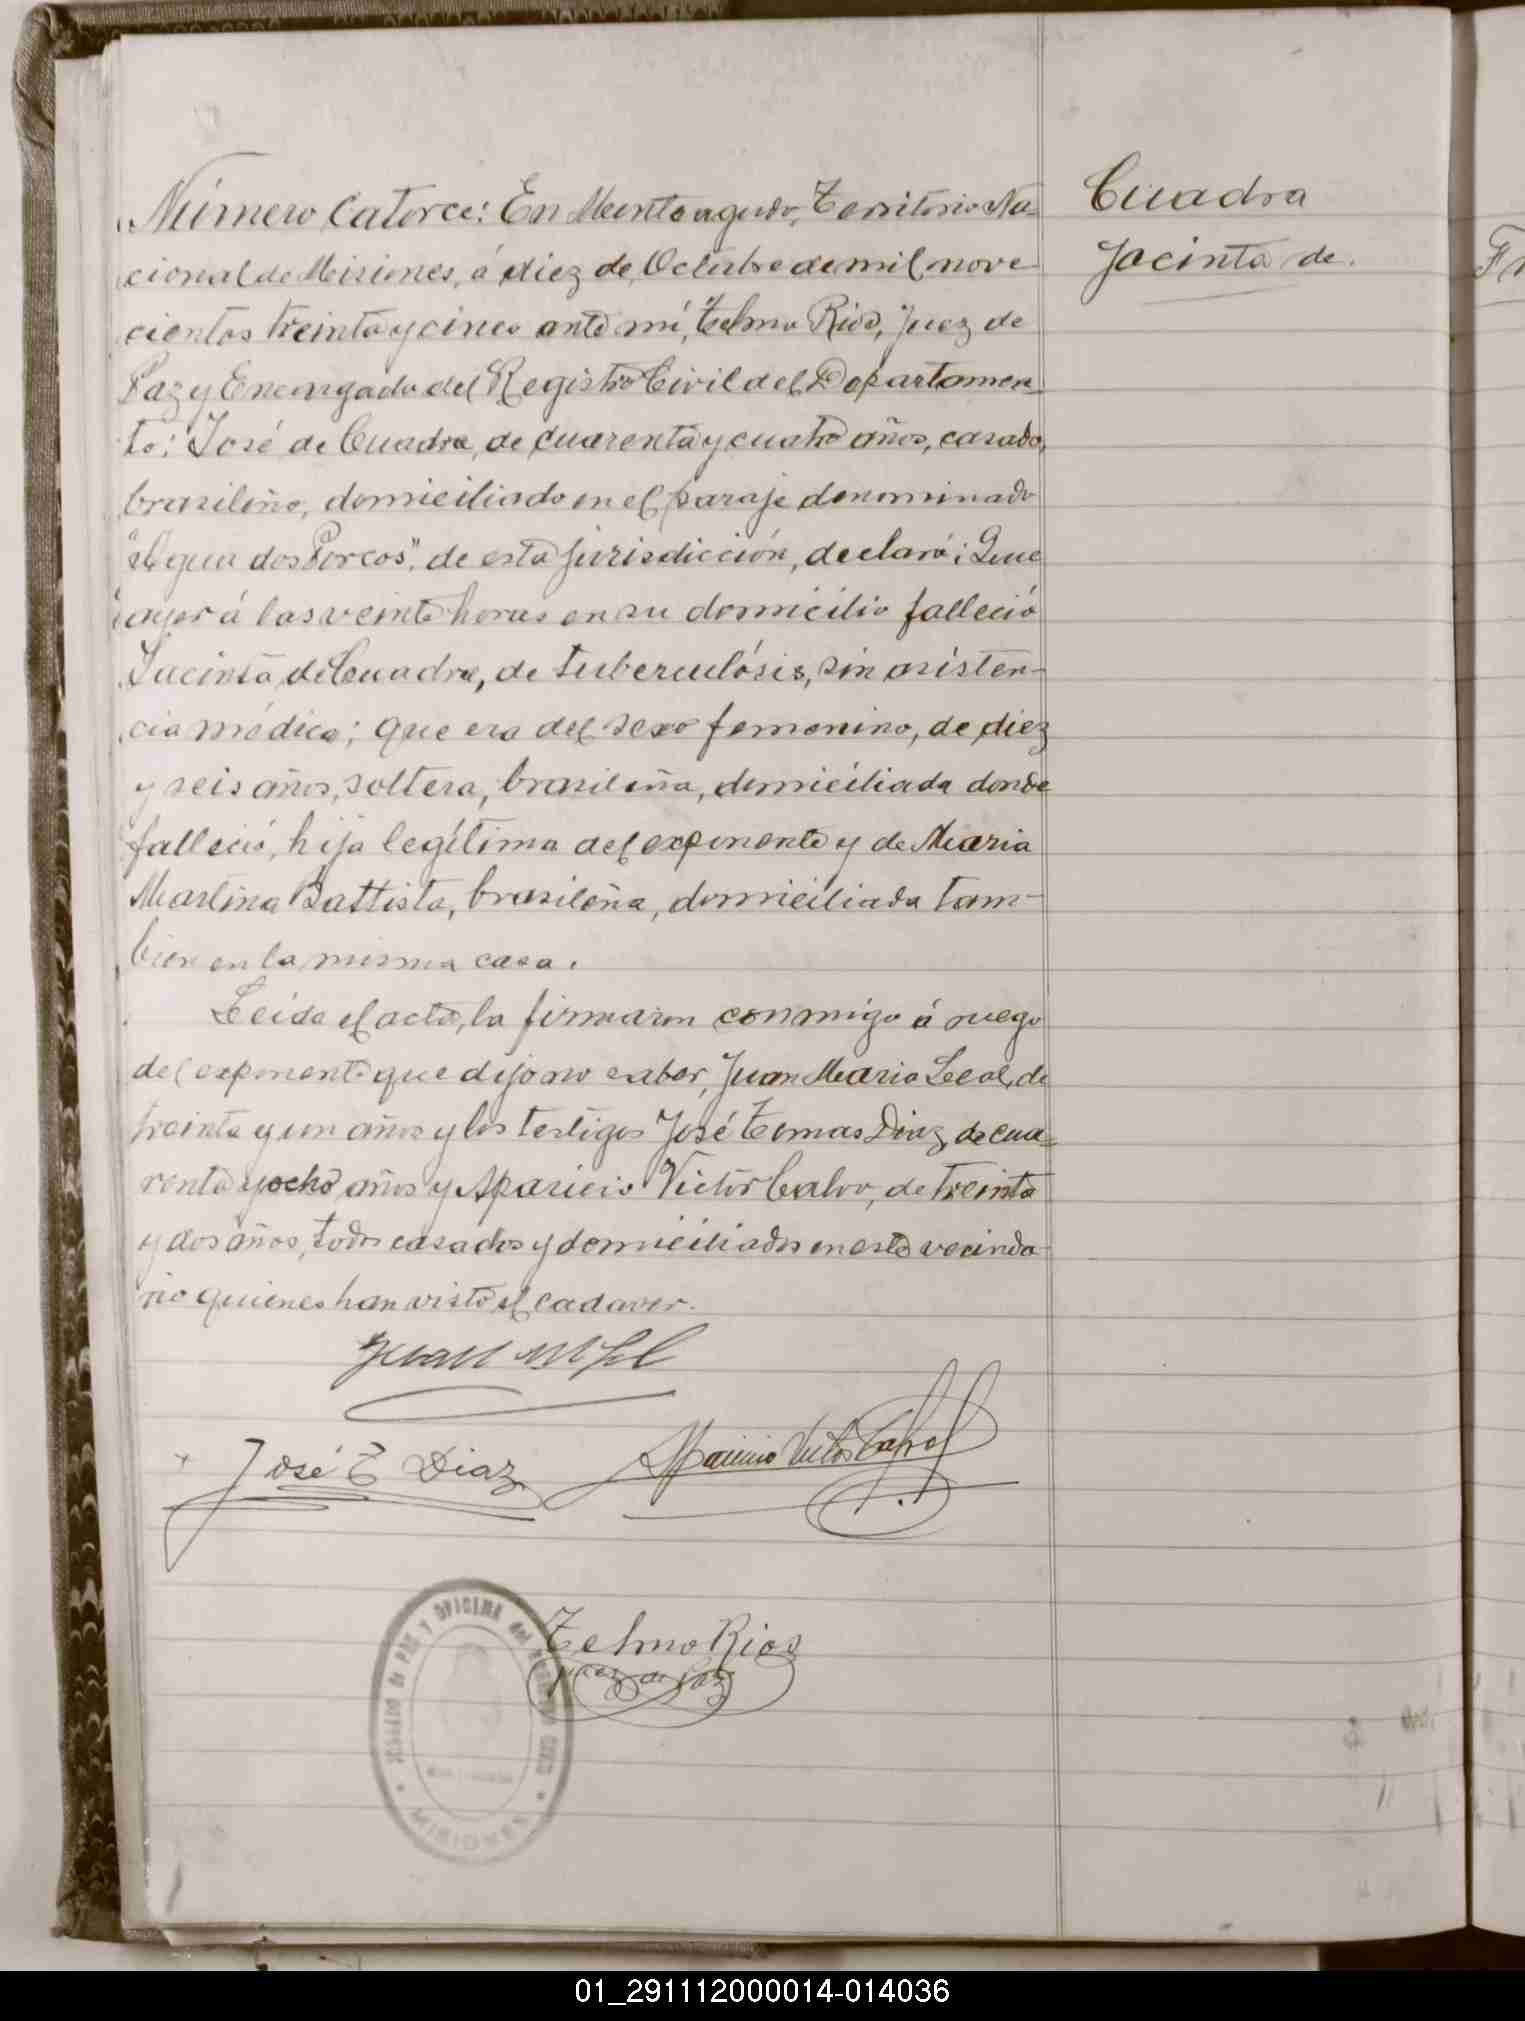 Número Catorce: En Monteagudo, Territorio Na-
cional de Misiones, á diez de Octubre de mil nove
cientos treinta y cinco ante mí, Telmo Rios, Juez de
Paz y Encargado del Registro Civil del Departamen-
to: José de Cuadra, de cuarenta y cuatro años, casado,
brasileño, domiciliado en el paraje denominado
"Agua dos Porcos", de esta jurisdicción, declaró: Que
ayer á las veinte horas en su domicilio falleció
Jacinta de Cuadra, de tuberculósis, sin asisten-
cia médica; que era del sexo femenino, de diez
y seis años, soltera, brasileña, domiciliada donde
falleció, hija legítima del exponente y de Maria
Martina Battista, brasileña, domiciliada tam-
bien en la misma casa.
Leida el acta, la firmaron conmigo á ruego
del exponente que dijo no saber, Juan Maria Leal, de
treinta y un años y los testigos José Tomas Diaz, de cua-
renta y ocho años y Aparicio Victor Calvo, de treinta
y dos años, todos casados y domiciliados en este vecinda-
rio quienes han visto el cadaver.
Juan M
José T Diaz
Aparicio Victor
Telmo Rios
Juez de Paz
JUZGADO de PAZ y OFICINA del REGISTRO CIVIL
MISIONES
Cuadra
Jacinta de.
01_291112000014-014036